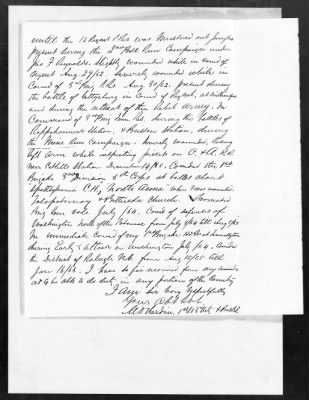 until the 12 Regmt P.R.C. was Mustered out, June/64
present during the 2nd Bull Run Campaign under
Jno F. Reynolds. Slightly wounded while in comd of
Regmt Aug. 29/62. Severely wounded while in
Comd of 3rd Brig P.R.C. Aug 30/62. present during
the battle of Gettysburg in Comd of Regmt, at Williamsport
and during the retreat of the Rebel Army. In
Command of 3rd Brig Penn Res. during the battles of
Rappahannock Station, & Bristoe Station, during
the Mine Run Campaign. Severely wounded, losing
left arm while inspecting pickets on O. & A. R.R.
near Catlett Station December 14/63. Comded the 1st
Brigade 3rd Division 5th Corps at battles about
Spottsylvania C.H., North Anna where I was wounded,
Totopotomoy & Bethesda Church. Promoted
Brig Genl Vols July /64. Comd of defences of
Washington North of the Potomac from July 9/64 till Aug/65
In immediate Comd of my 1st Brigade
during Early's attack on Washington July /64. Comded
the District of Raleigh N.C. from Aug 10/65 till
Jan 16/66. I have so far recovered from my wounds
as to be able to do duty in any portion of the Country
I am Sir Very Respectfully
Your Obt Svt
M D Hardin,